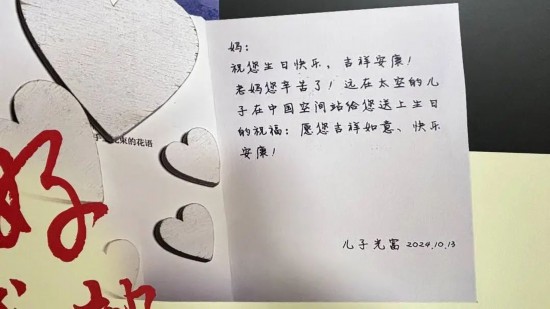 妈：
祝您生日快乐，吉祥安康！
老妈您辛苦了！远在太空的儿
子在中国空间站给您送上生日
的祝福：愿您吉祥如意、快乐
安康！
儿子光富 2024.10.13
束的花语
好